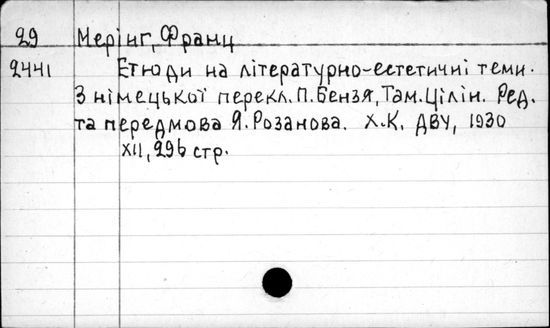 29 Мерінг, Франц
2441 Етюди на літературно-естетичні теми.
З німецької перекл. П. Бензя, Там. Цілін. Ред.
та передмова Я. Розанова. Х.К. ДВУ, 1930
XII, 296 стр.